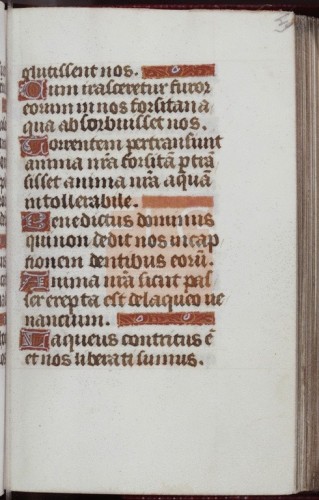 glutissent nos.
Cum irasceretur furor
eorum in nos forsitan a
qua absorbuisset nos.
Torrentem pertransiunt
anima nr̄a forsitā ptrā
sisset anima nr̄a aquam
intollerabile.
Benedictus dominus
qui non dedit nos in cap
tionem dentibus eorū.
Anima nr̄a sicut pas
ser erepta est de laqueo ve
nancium.
Laqueus contritus ē
et nos liberati sumus.